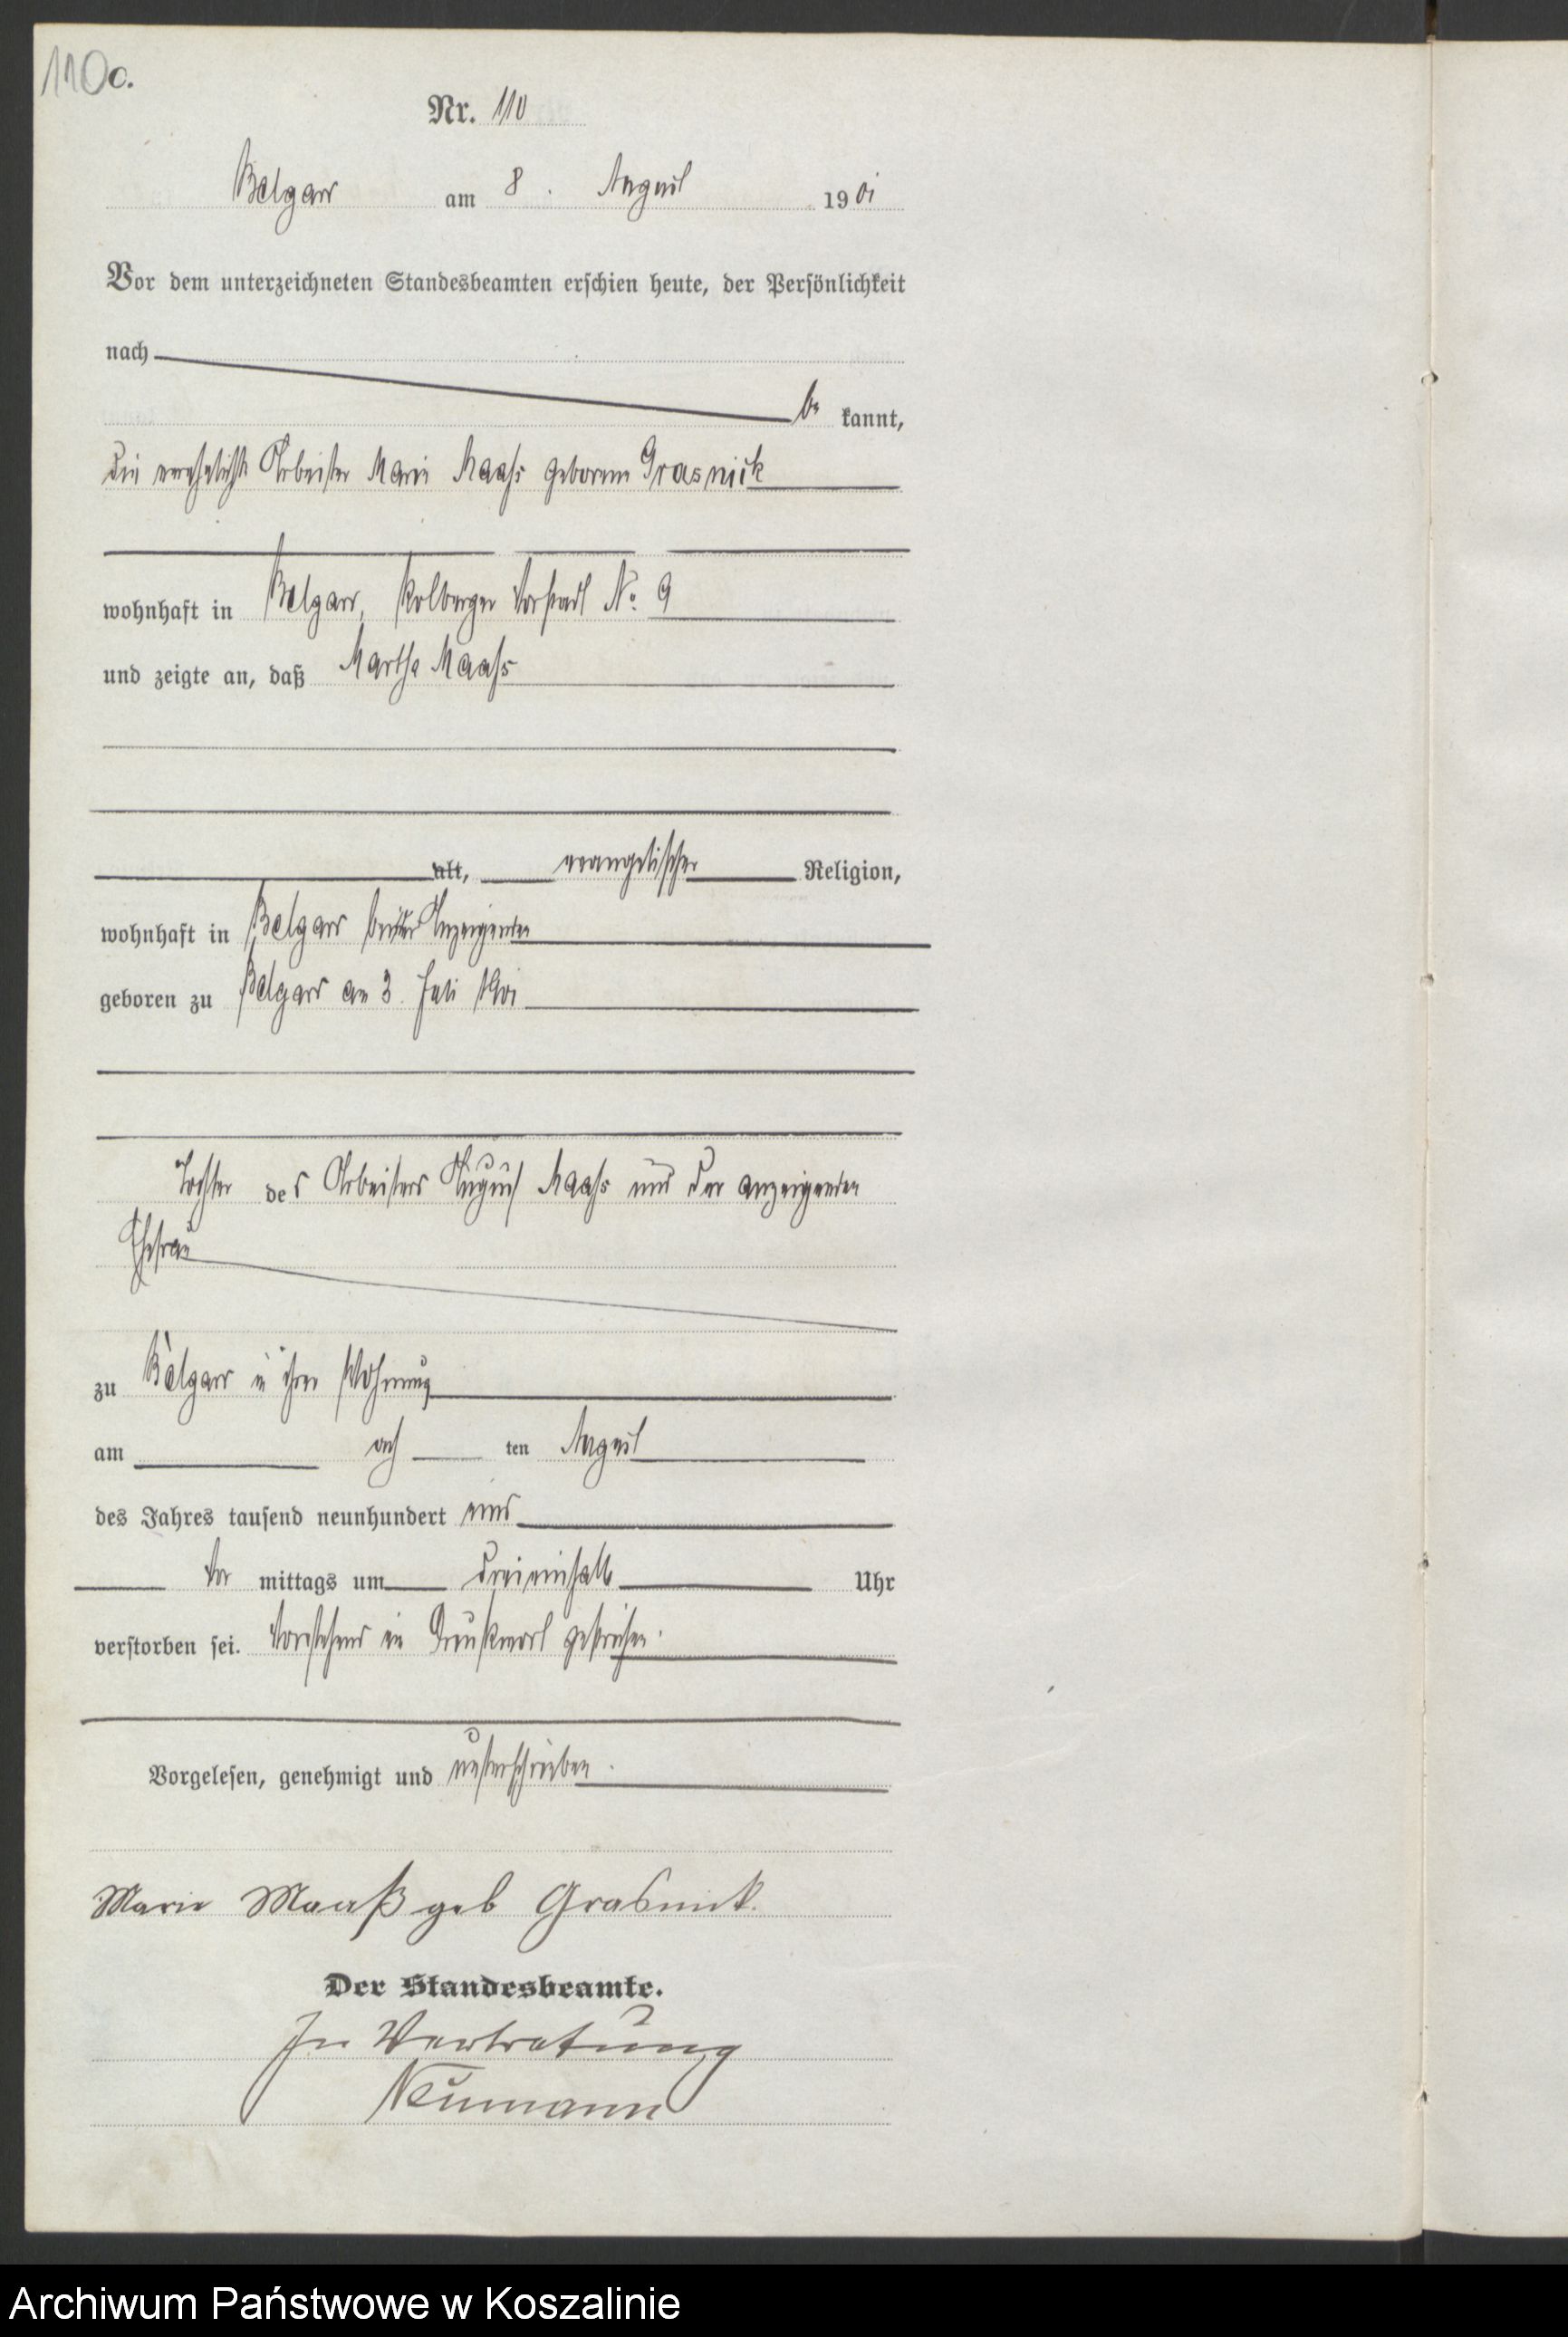 110c.
Nr. 110
Belgard am 8. August 1901
Vor dem unterzeichneten Standesbeamten erschien heute, der Persönlichkeit
nach
be kannt,
die verehelichte Arbeiter Marie Maaß geborene Grasnick
wohnhaft in Belgard, Kolberger Vorstadt No. 9
und zeigte an, daß Martha Maaß
alt, evangelischer Religion,
wohnhaft in Belgard bei der Anzeigenden
geboren zu Belgard am 3. Juli 1901
Tochter des Arbeiters August Maaß und der anzeigenden
Ehefrau
zu Belgard in ihrer Wohnung
am acht ten August
des Jahres tausend neunhundert eins
Vor mittags um dreieinhalb Uhr
verstorben sei. Vorstehend ein Druckwort gestrichen.
Vorgelesen, genehmigt und unterschrieben.
Marie Maaß geb Grasnick.
Der Standesbeamte.
In Vertretung
Neumann
Archiwum Państwowe w Koszalinie